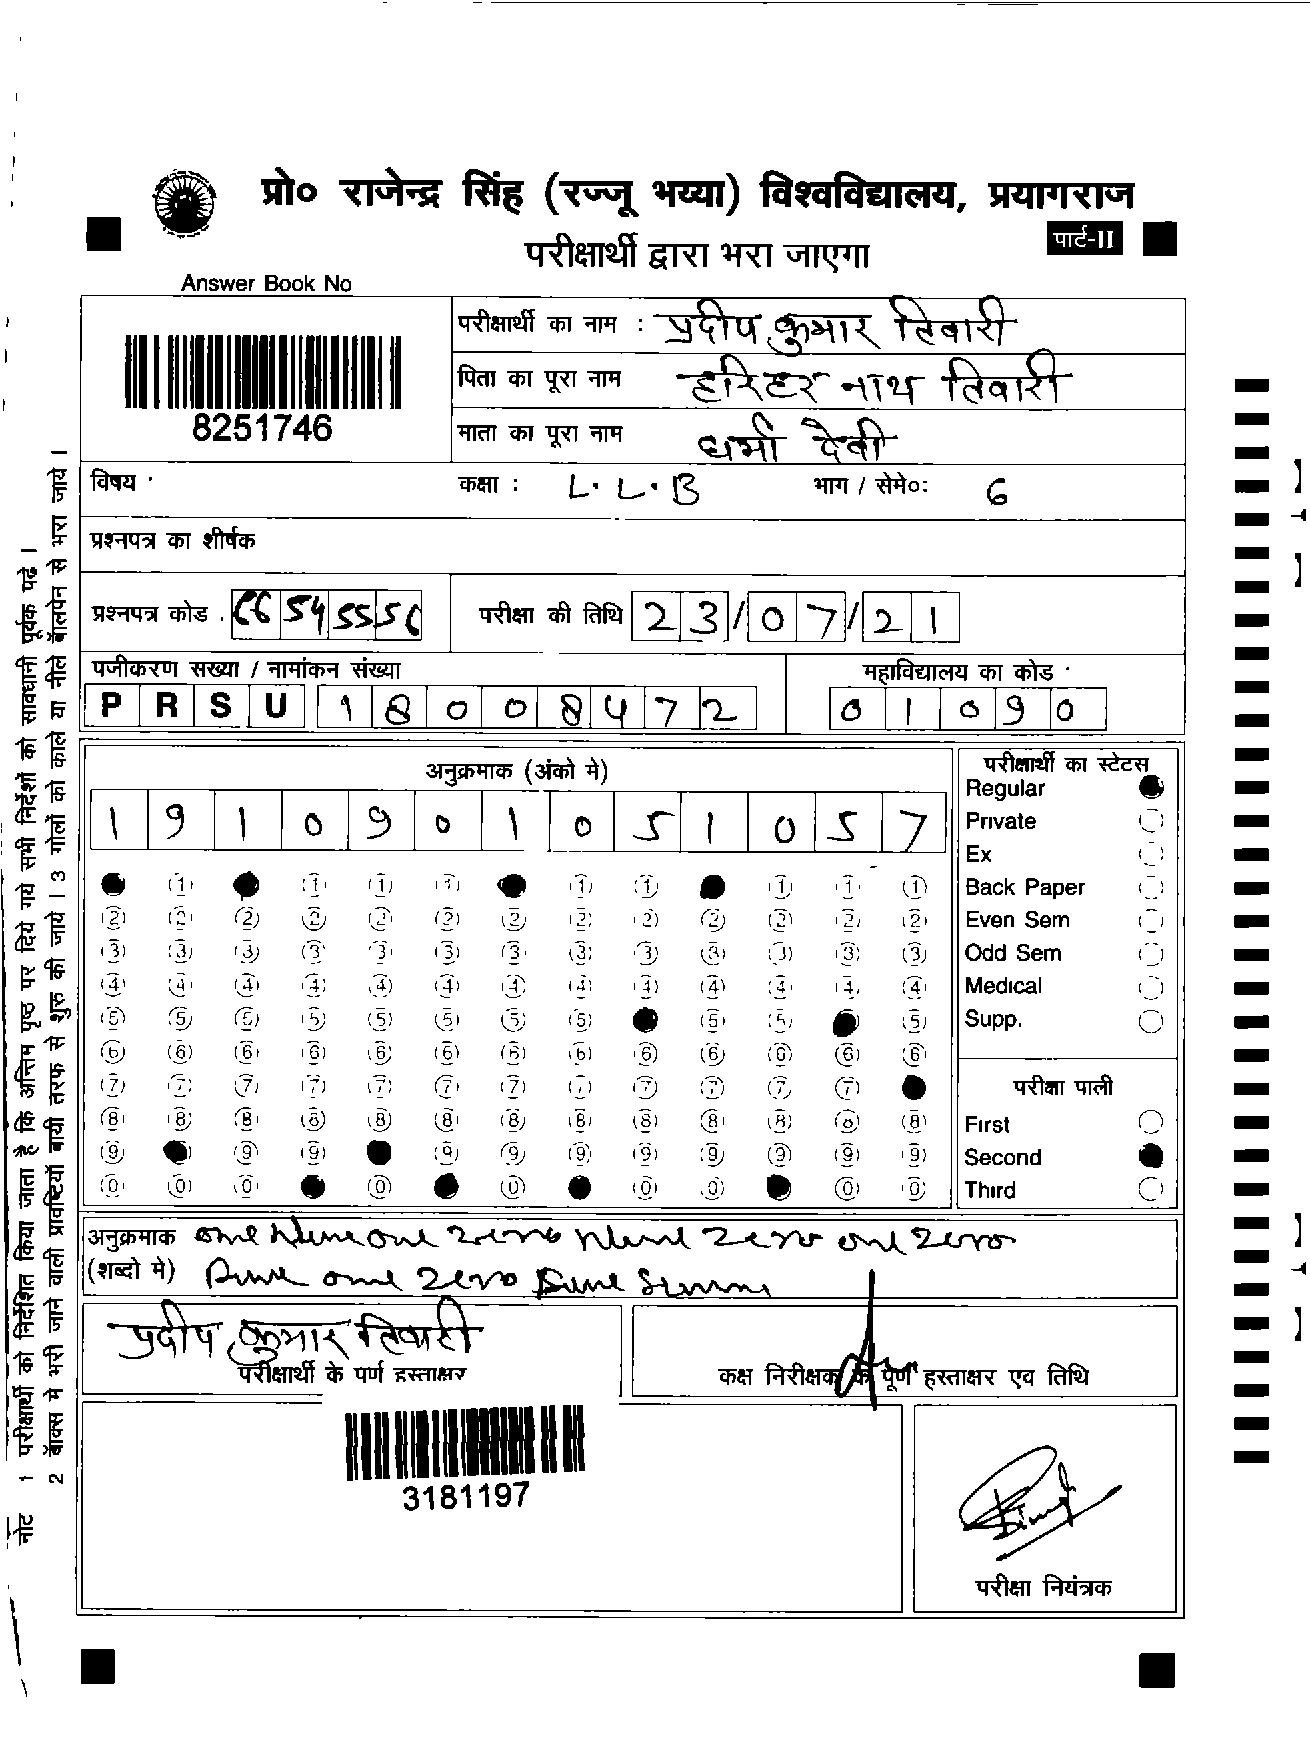 प्रो० राजेन्द्र सिंह (रज्जू भय्या) विश्वविद्यालय, प्रयागराज
परीक्षार्थी द्वारा भरा जाएगा
पार्ट-II
Answer Book No
8251746
परीक्षार्थी का नाम : प्रदीप कुमार तिवारी
पिता का पूरा नाम हरिहर नाथ तिवारी
माता का पूरा नाम धर्मा देवी
विषय
कक्षा : L.L.B
भाग / सेमे०: 6
प्रश्नपत्र का शीर्षक
प्रश्नपत्र कोड
परीक्षा की तिथि 23/07/21
पजीकरण सख्या / नामांकन संख्या
PRSU 18008472
महाविद्यालय का कोड
01090
अनुक्रमाक (अंको मे)
1 9 1 0 9 0 1 0 5 1 0 5 7
1 1 1 1 1 1 1 1 1
2 2 2 2 2 2 2 2 2 2 2 2 2
3 3 3 3 3 3 3 3 3 3 3 3 3
4 4 4 4 4 4 4 4 4 4 4 4 4
5 5 5 5 5 5 5 5 5 5 5
6 6 6 6 6 6 6 6 6 6 6 6 6
7 7 7 7 7 7 7 7 7 7 7 7
8 8 8 8 8 8 8 8 8 8 8 8 8
9 9 9 9 9 9 9 9 9 9 9
0 0 0 0 0 0 0 0 0
परीक्षार्थी का स्टेटस
Regular
Private
Ex
Back Paper
Even Sem
Odd Sem
Medical
Supp.
परीक्षा पाली
First
Second
Third
अनुक्रमाक one Nine one zero Nine zero one zero
(शब्दो मे) five one zero five seven
प्रदीप कुमार तिवारी
परीक्षार्थी के पूर्ण हस्ताक्षर
कक्ष निरीक्षक के पूर्ण हस्ताक्षर एव तिथि
3181197
परीक्षा नियंत्रक
नोट 1 परीक्षार्थी को निर्देशित किया जाता है कि अन्तिम पृष्ठ पर दिये गये सभी निर्देशों को सावधानी पूर्वक पढे ।
2 बॉक्स मे भरी जाने वाली प्रविष्टियों बायी तरफ से शुरु की जाये । 3 गोलों को काले या नीले बॉलपेन से भरा जाये ।